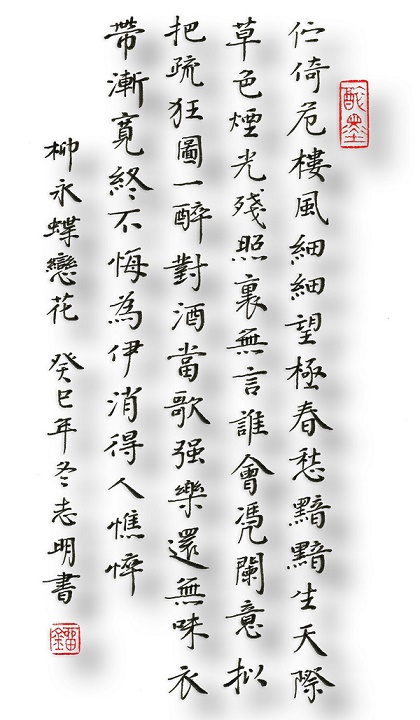 伫倚危樓風細細望極春愁黯黯生天際
草色煙光殘照裏無言誰會凴闌意拟
把疏狂圖一醉對酒當歌强樂還無味衣
帶漸寬終不悔為伊消得人憔悴
柳永蝶戀花 癸巳年冬志明書